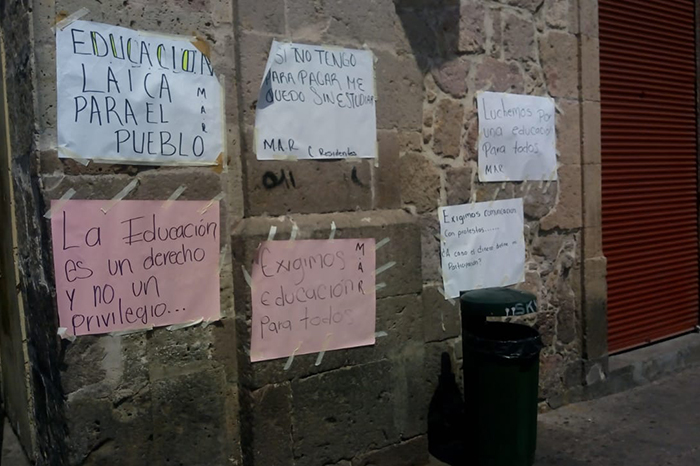 EDUCACION
LAICA
PARA EL
PUEBLO
MAR
SI NO TENGO
PARA PAGAR, ME
QUEDO SIN ESTUDIAR
M.A.R. (Residentes
Luchemos Por
una educación
para todos
M.A.R.
La Educación
es un derecho
y no un
privilegio...
Exigimos
educación
para todos
MAR
Exigimos
con protestas......
¿A caso el dinero
Participación?